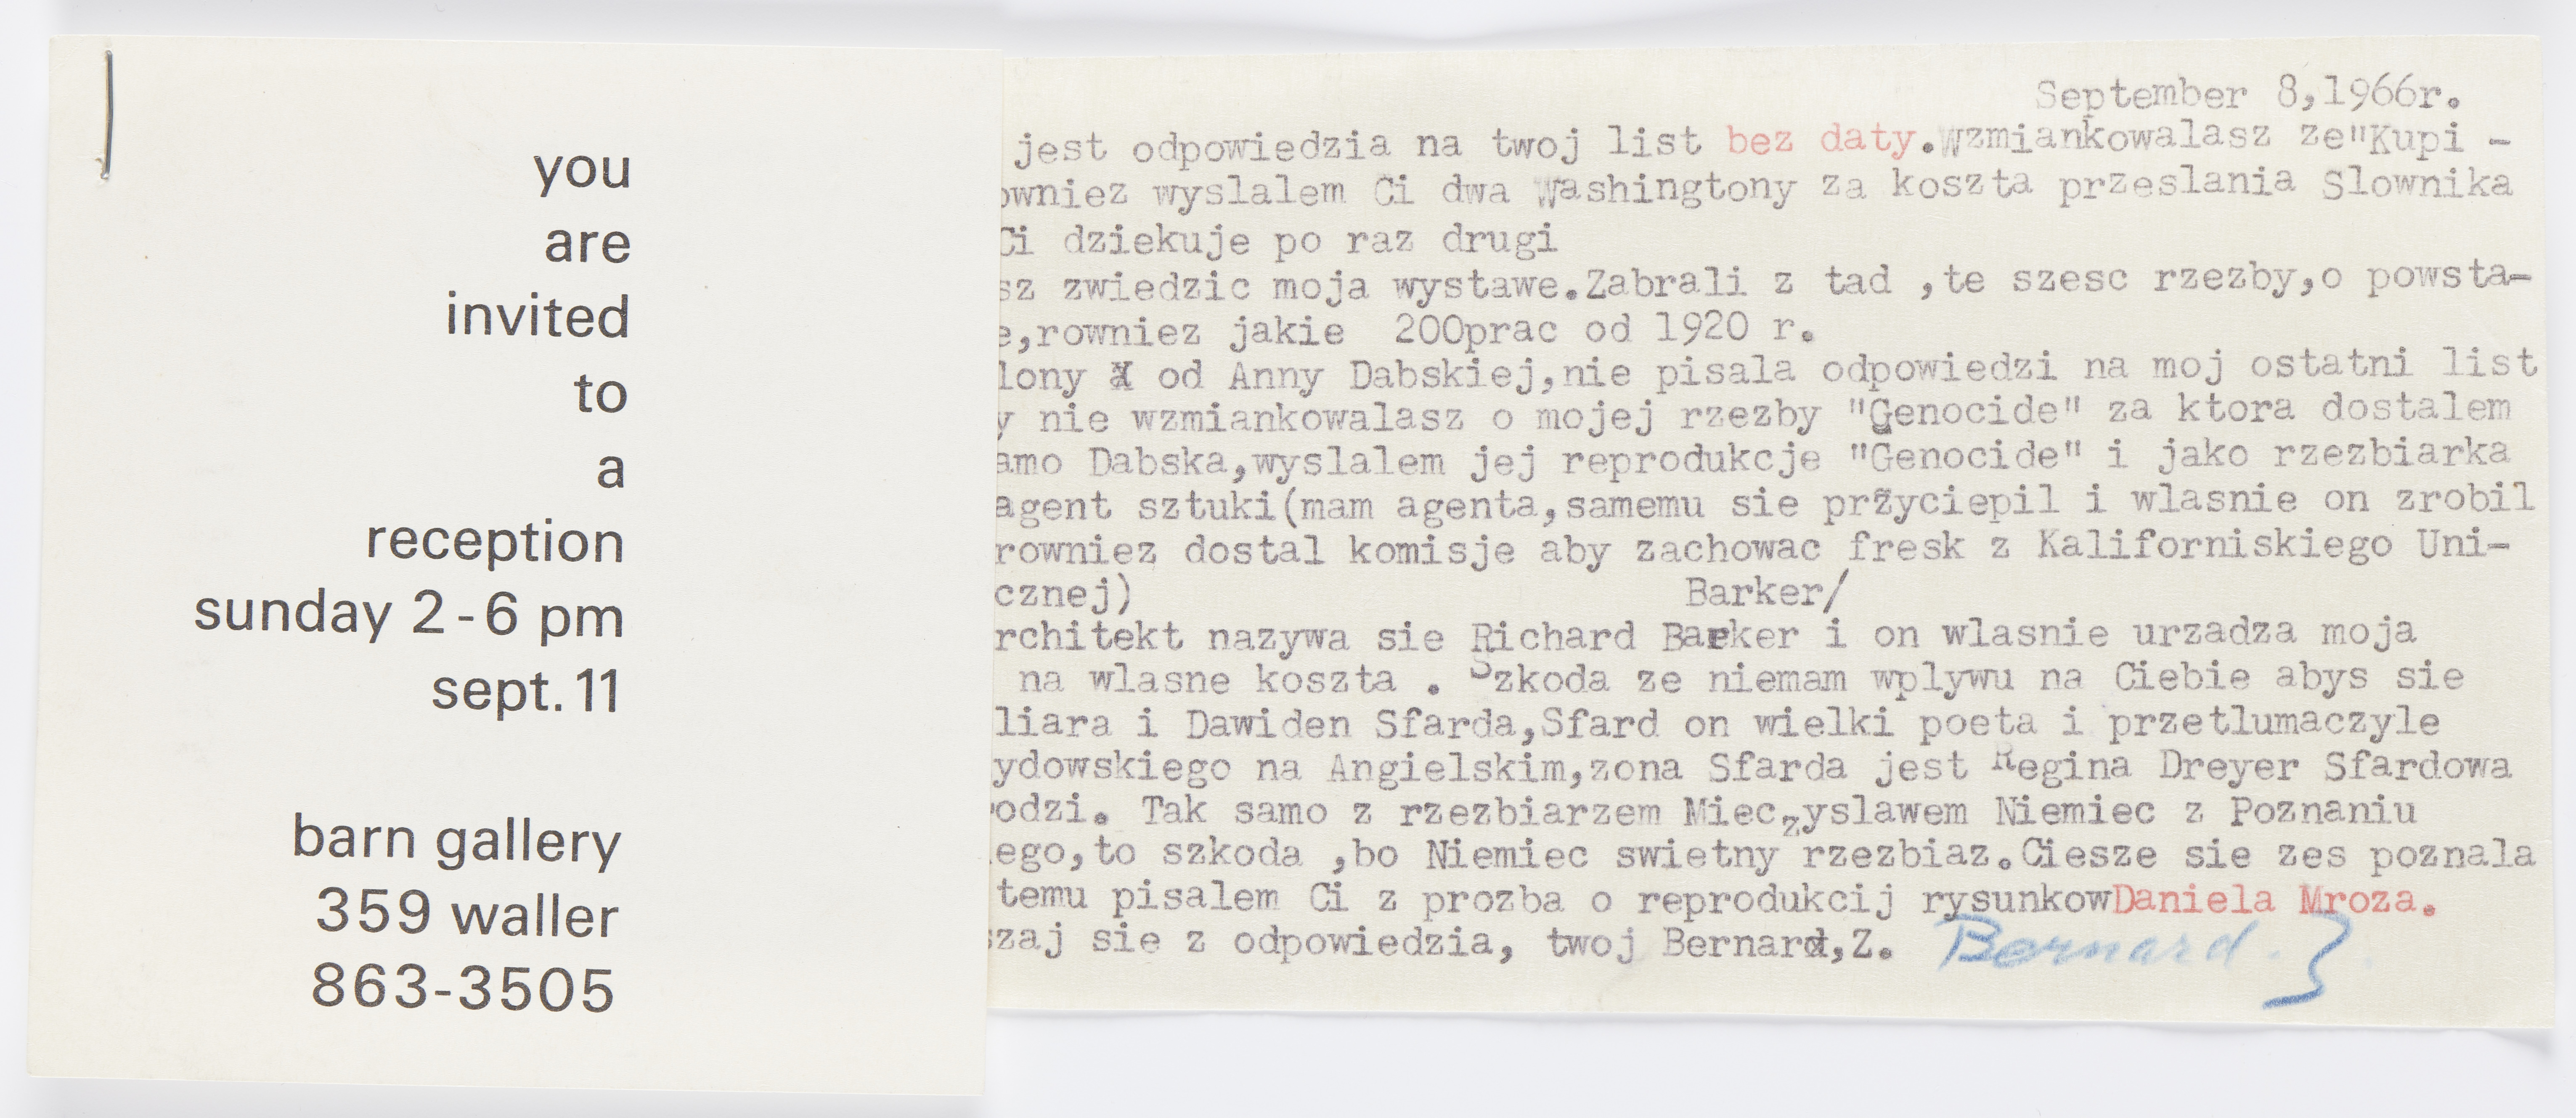 you
are
invited
to
a
reception
sunday 2-6 pm
sept. 11
barn gallery
359 waller
863-3505
September 8,1966r.
jest odpowiedzia na twoj list bez daty.Wzmiankowalasz ze"Kupi -
owniez wyslalem Ci dwa Washingtony za koszta przeslania Slownika
Ci dziekuje po raz drugi
sz zwiedzic moja wystawe.Zabrali z tad ,te szesc rzezby,o powsta-
e,rowniez jakie 200prac od 1920 r.
lony od Anny Dabskiej,nie pisala odpowiedzi na moj ostatni list
y nie wzmiankowalasz o mojej rzezby "Genocide" za ktora dostalem
amo Dabska,wyslalem jej reprodukcje "Genocide" i jako rzezbiarka
agent sztuki(mam agenta,samemu sie przyciepil i wlasnie on zrobil
rowniez dostal komisje aby zachowac fresk z Kaliforniskiego Uni-
cznej)
Barker/
rchitekt nazywa sie Richard Barker i on wlasnie urzadza moja
na wlasne koszta . Szkoda ze niemam wplywu na Ciebie abys sie
liara i Dawiden Sfarda,Sfard on wielki poeta i przetlumaczyle
ydowskiego na Angielskim,zona Sfarda jest Regina Dreyer Sfardowa
odzi. Tak samo z rzezbiarzem Mieczyslawem Niemiec z Poznaniu
ego,to szkoda ,bo Niemiec swietny rzezbiaz.Ciesze sie zes poznala
temu pisalem Ci z prozba o reprodukcij rysunkowDaniela Mroza.
szaj sie z odpowiedzia, twoj Bernard,Z.
Bernard. Z